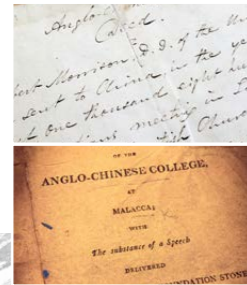 Anglo
Caled.
bert Morrison D.D. of the
sent to China in the ye
t one thousand eight hun
meeting in
Church
OF THE
ANGLO-CHINESE COLLEGE,
AT
MALACCA;
WITH
The substance of a Speech
DELIVERED
UNDATION STONE